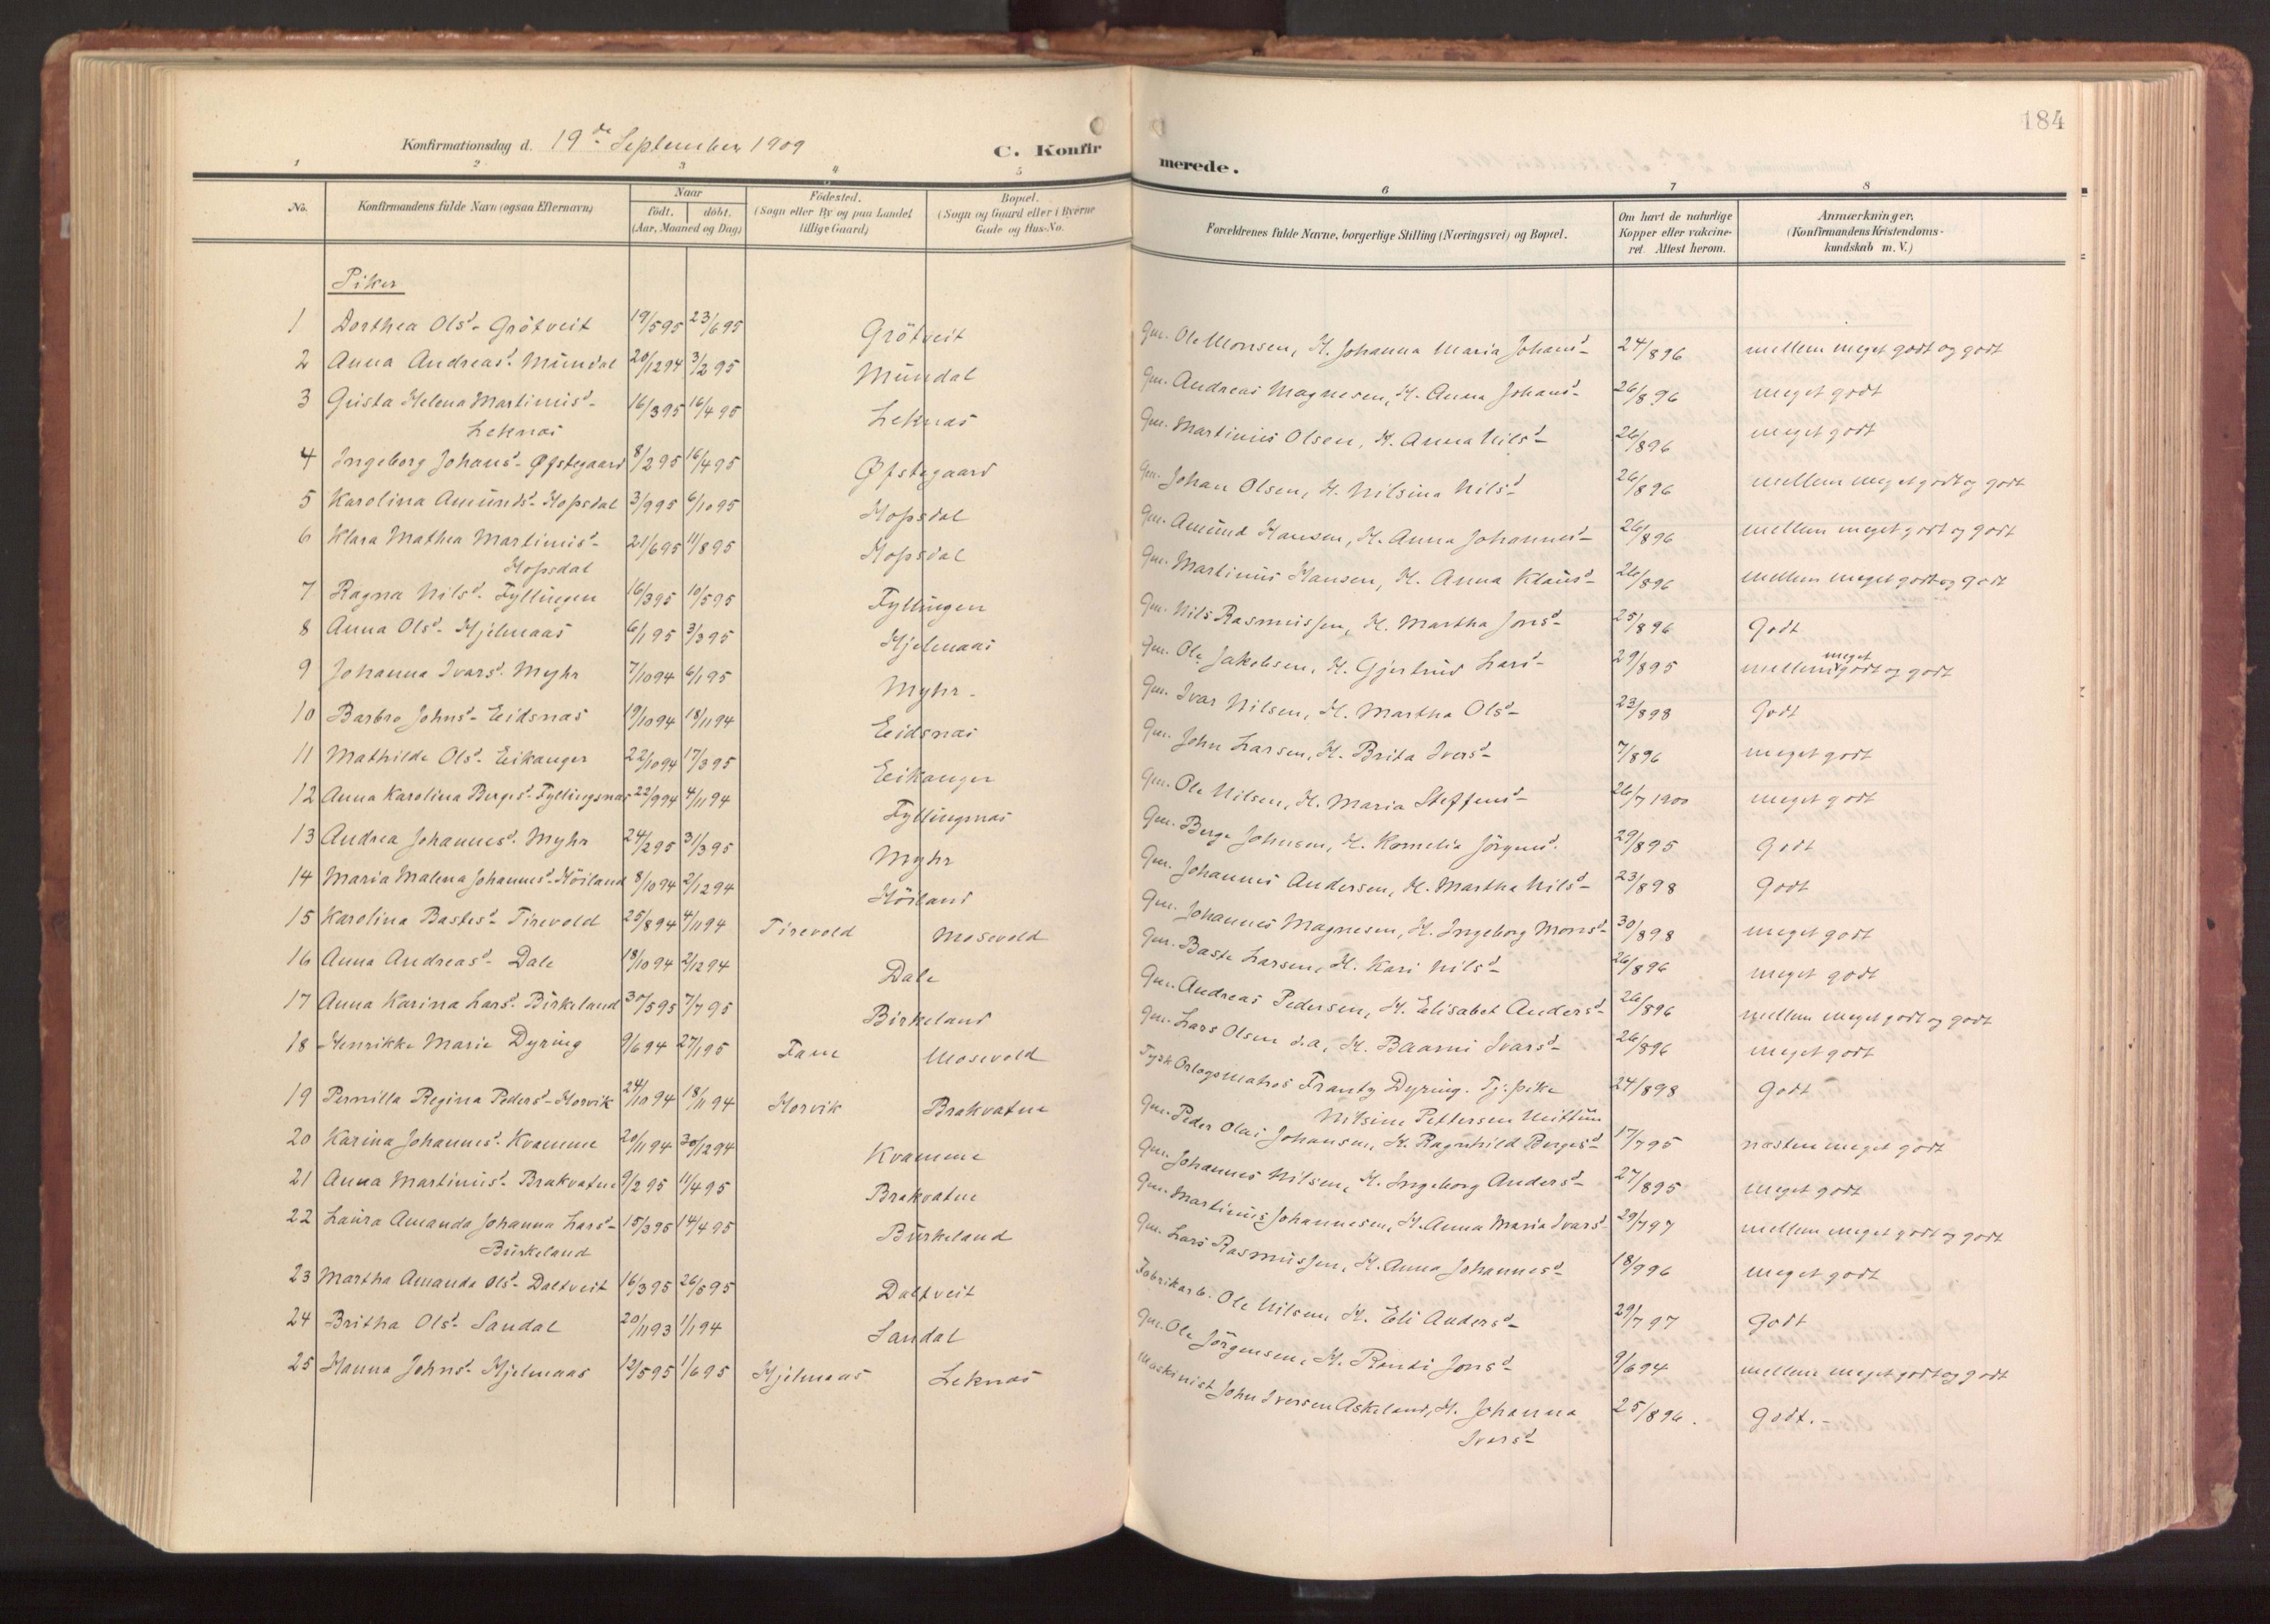 184
Konfirmationsdag d. 19de September 1909
C. Konfirmerede.
1 2 3 4 5 6 7 8
No.
Konfirmandens fulde Navn (ogsaa Efternavn)
Naar
födt. döbt.
(Aar, Maaned og Dag)
Födested.
(Sogn eller By og paa Landet
tillige Gaard)
Bopæl.
(Sogn og Gaard eller i Byerne
Gade og Hus-No.
Forældrenes fulde Navne, borgerlige Stilling (Næringsvei) og Bopæl.
Om havt de naturlige
Kopper eller vakcine-
ret. Attest herom.
Anmærkninger.
(Konfirmandens Kristendoms-
kundskab m. V.)
Piker
1 Dorthea Olsd- Grötveit 19/5 95 23/6 95 Grötveit Gm. Ole Monsen, H. Johanna Maria Johansd- 24/8 96 mellem meget godt og godt
2 Anna Andreasd- Mundal 20/12 94 3/2 95 Mundal Gm. Andreas Magnesen, H. Anna Johansd- 26/8 96 meget godt
3 Gusta Helena Martinusd-
Leknæs 16/3 95 16/4 95 Leknæs Gm. Martinus Olsen, H. Anna Nilsd- 26/8 96 meget godt
4 Ingeborg Johansd- Øfstegaard 8/2 95 16/4 95 Øfstegaard Gm. Johan Olsen, H. Nilsina Nilsd- 26/8 96 mellem meget godt og godt
5 Karolina Amundsd- Hopsdal 3/9 95 6/10 95 Hopsdal Gm. Amund Hansen, H. Anna Johannesd- 26/8 96 mellem meget godt og godt
6 Klara Mathea Martinusd-
Hopsdal 21/6 95 11/8 95 Hopsdal Gm. Martinus Hansen, H. Anna Klausd- 26/8 96 mellem meget godt og godt
7 Ragna Nilsd- Fyllingen 16/3 95 10/5 95 Fyllingen Gm. Nils Rasmussen, H. Martha Jonsd- 25/8 96 Godt
8 Anna Olsd- Hjelmaas 6/1 95 3/3 95 Hjelmaas Gm. Ole Jakobsen, H. Gjertrud Larsd- 29/8 95 mellem meget godt og godt
9 Johanna Ivarsd- Myhr 7/10 94 6/1 95 Myhr- Gm. Ivar Nilsen, H. Martha Olsd- 23/8 98 Godt
10 Barbro Johnsd- Eidsnæs 19/10 94 18/11 94 Eidsnæs Gm. John Larsen, H. Brita Iversd- 7/8 96 meget godt
11 Mathilde Olsd- Eikanger 22/10 94 17/3 95 Eikanger Gm. Ole Nilsen, H. Maria Steffensd- 26/7 1900 meget godt
12 Anna Karolina Bergesd- Fyllingsnæs 22/9 94 4/11 94 Fyllingsnæs Gm. Berge Johnsen, H. Kornelia Jörgensd. 29/8 95 Godt
13 Andrea Johannesd- Myhr 24/2 95 31/3 95 Myhr Gm. Johannes Andersen, H. Martha Nilsd- 23/8 98 Godt
14 Maria Malena Johannesd- Höiland 8/10 94 2/12 94 Höiland Gm. Johannes Magnesen, H. Ingeborg Monsd- 30/8 98 meget godt
15 Karolina Bastesd- Tirevold 25/8 94 4/11 94 Tirevold Mosevold Gm. Baste Larsen, H. Kari Nilsd- 26/8 96 meget godt
16 Anna Andreasd- Dale 18/10 94 2/12 94 Dale Gm. Andreas Pedersen, H. Elisabet Andersd- 26/8 96 mellem meget godt og godt
17 Anna Karina Larsd- Birkeland 30/5 95 7/7 95 Birkeland Gm. Lars Olsen d.a, H. Baarni Ivarsd- 26/8 96 meget godt
18 Henrikke Marie Dyring 9/6 94 27/1 95 Fane Mosevold Tysk Orlogsmatros Frantz Dyring. Tj: pike
Nilsine Pettersen Mittun 24/8 98 Godt
19 Pernilla Regina Pedersd- Horvik 24/10 94 18/11 94 Horvik Brakvatne Gm. Peder Olai Johansen, H. Ragnhild Bergesd- 17/7 95 næsten meget godt
20 Karina Johannesd- Kvamme 20/11 94 30/12 94 Kvamme Gm. Johannes Nilsen, H. Ingeborg Andersd- 27/8 95 meget godt
21 Anna Martinusd- Brakvatne 9/2 95 11/4 95 Brakvatne Gm. Martinus Johannesen, H. Anna Maria Ivarsd- 29/7 97 mellem meget godt og godt
22 Laura Amanda Johanna Larsd-
Birkeland 15/3 95 14/4 95 Birkeland Gm. Lars Rasmussen, H. Anna Johannesd- 18/9 96 meget godt
23 Martha Amanda Olsd- Daltveit 16/3 95 26/5 95 Daltveit Fabrikarb. Ole Nilsen, H. Eli Andersd- 29/7 97 Godt
24 Britha Olsd- Sandal 20/11 93 1/1 94 Sandal Gm. Ole Jörgensen, H. Randi Jonsd- 9/6 94 mellem meget godt og godt
25 Hanna Johnsd- Hjelmaas 12/5 95 1/6 95 Hjelmaas Leknæs Maskinist John Iversen Askeland, H. Johanna
Ivarsd- 25/8 96. Godt.-